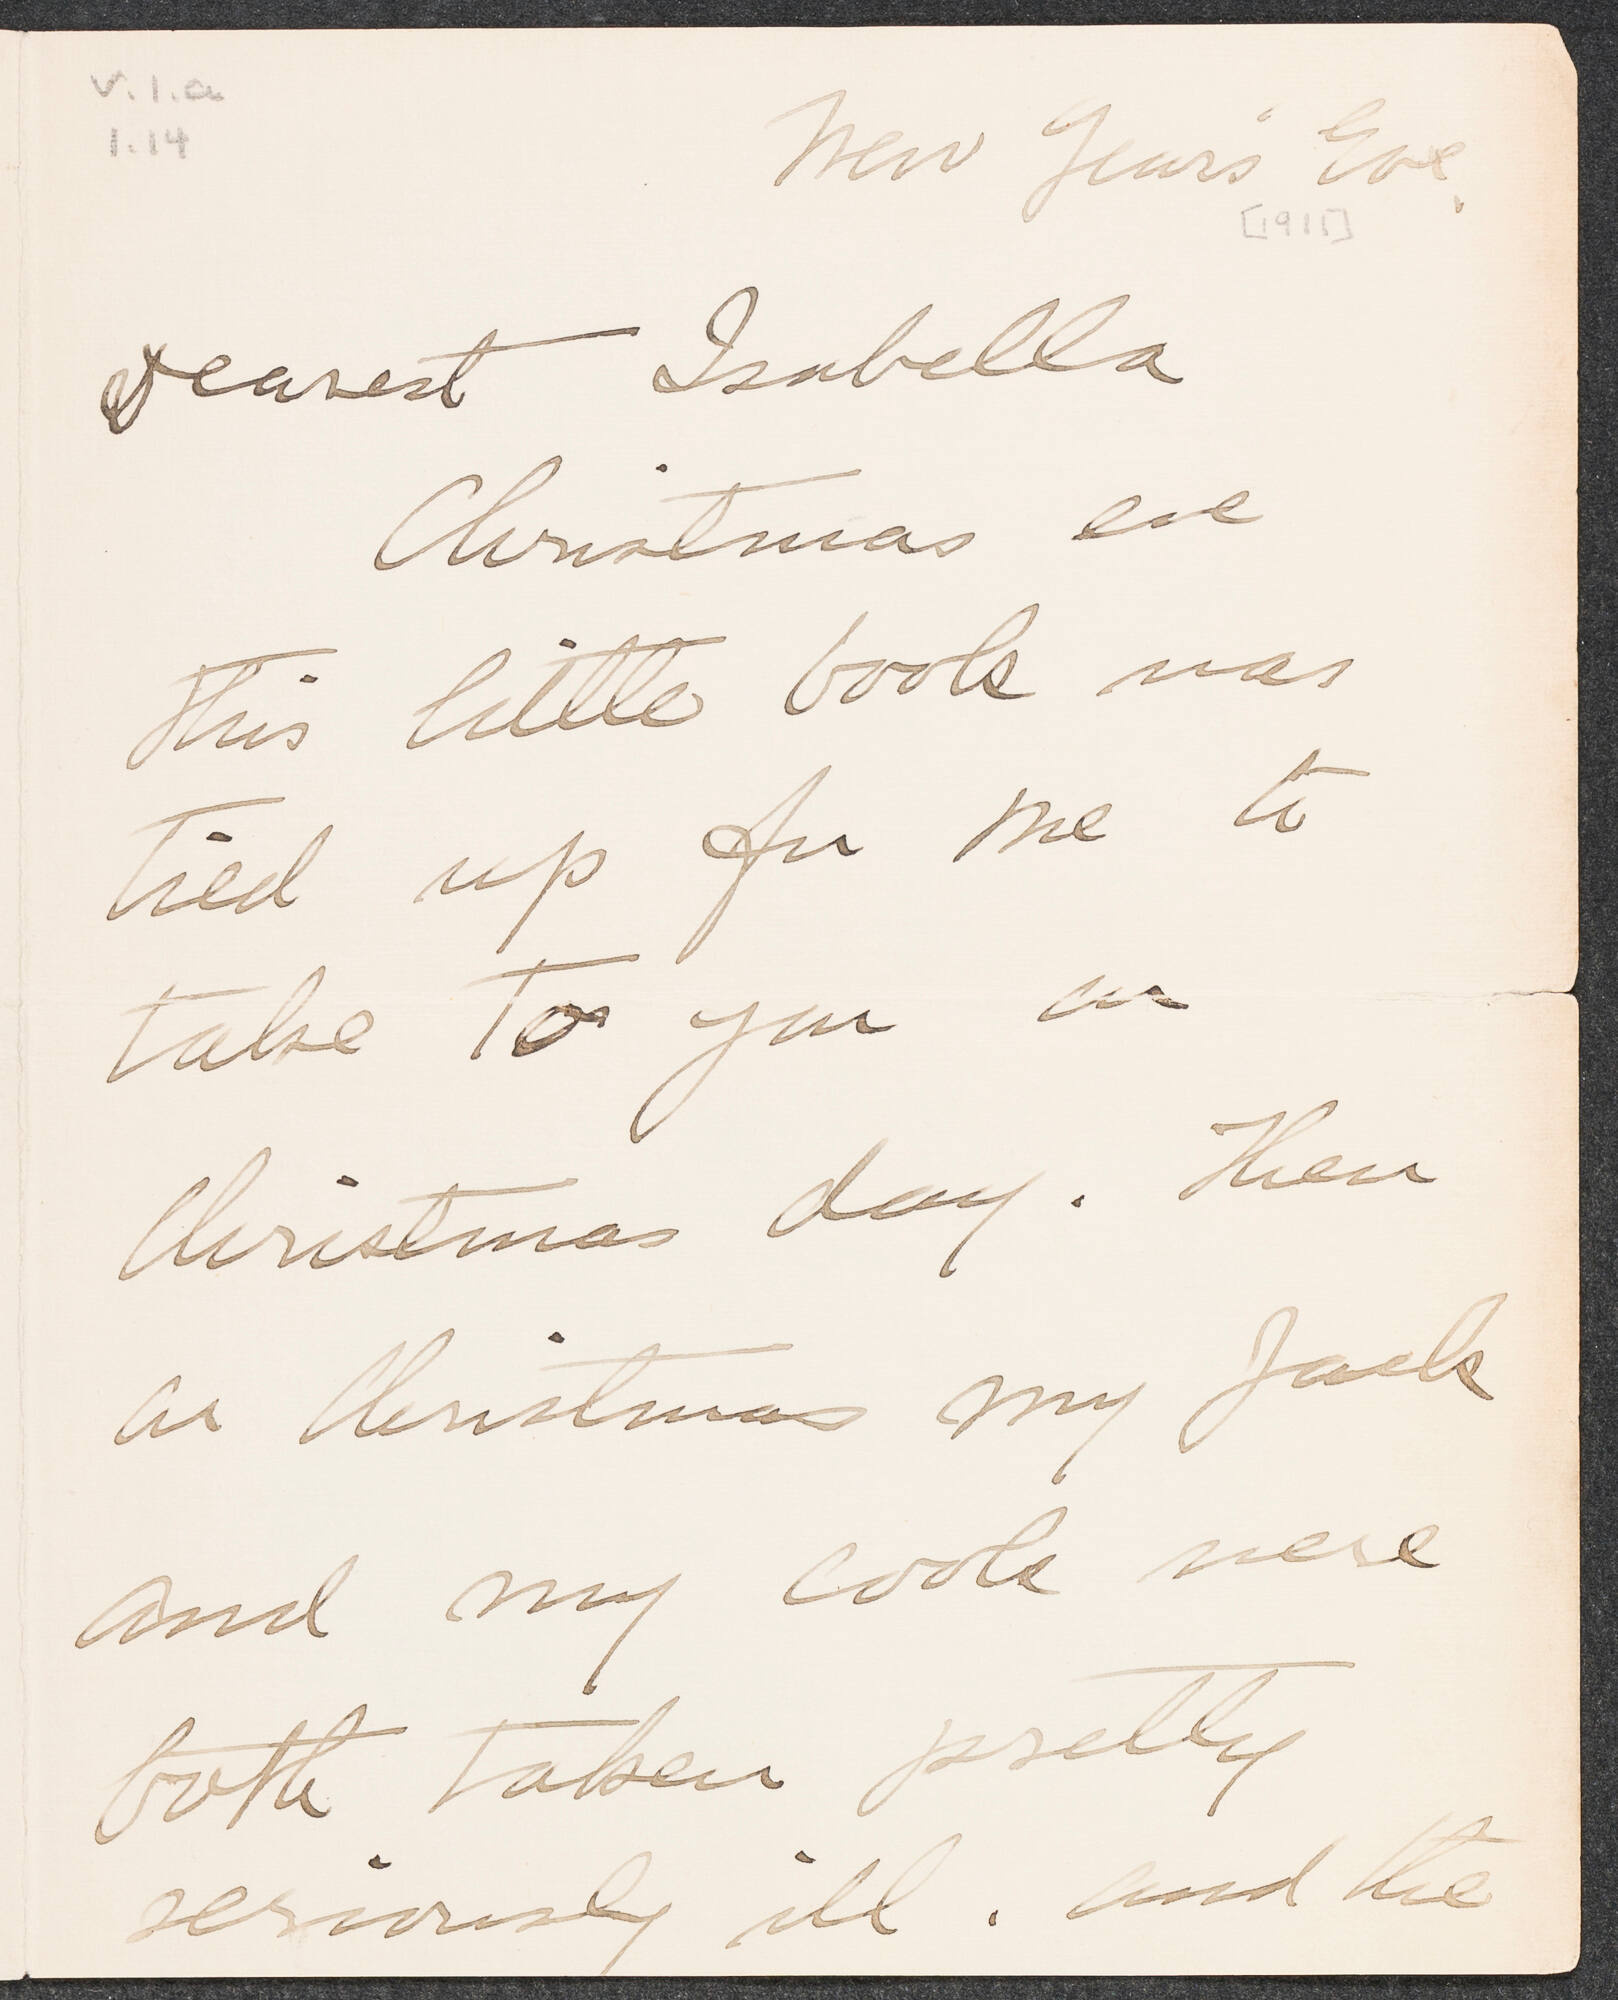 v.1.a
1.14
New Year's Eve.
[1911]
Dearest Isabella
Christmas eve
this little book was
tied up for me to
take to you on
Christmas day. Then
on Christmas my Jack
and my cook were
both taken pretty
seriously ill. and the